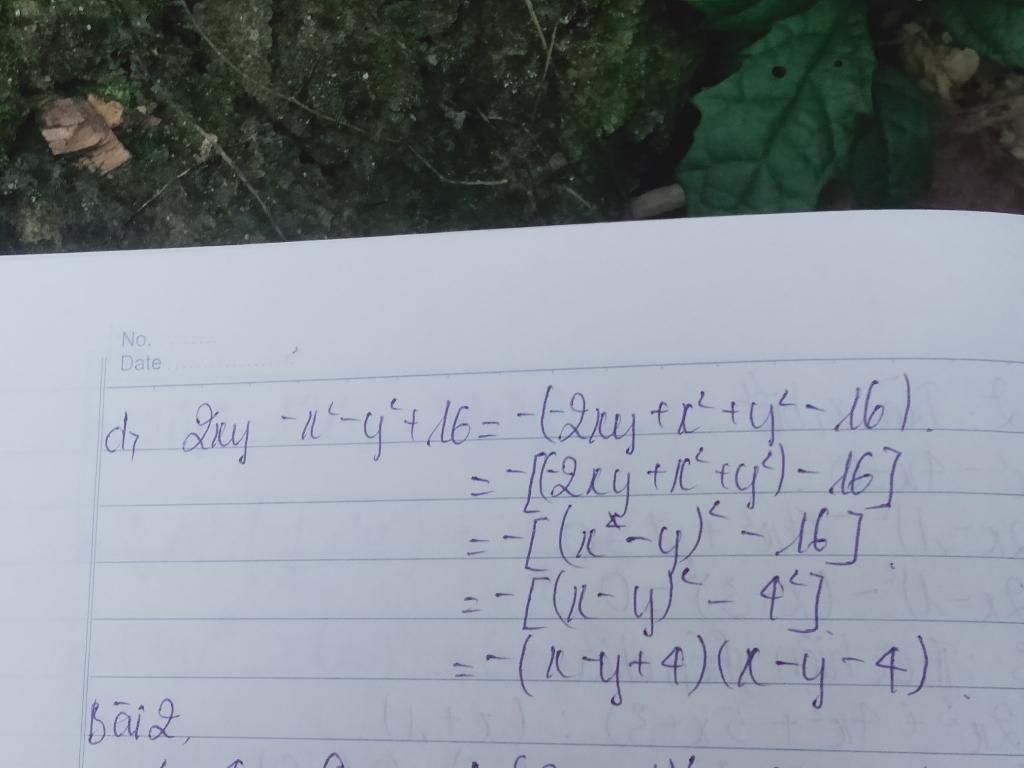 No.
Date
d, 2xy -x²-y²+16 = -(-2xy+x²+y²-16).
= -[(-2xy+x²+y²)-16]
= -[(x-y)²-16]
= -[(x-y)²-4²]
= -(x-y+4)(x-y-4)
Bài 2,